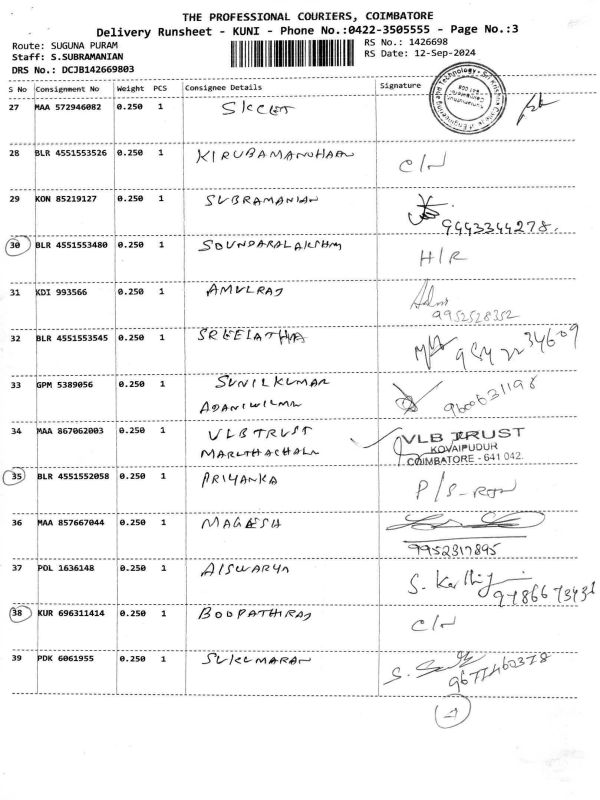 THE PROFESSIONAL COURIERS, COIMBATORE
Delivery Runsheet - KUNI - Phone No.:0422-3505555 - Page No.:3
Route: SUGUNA PURAM RS No.: 1426698
Staff: S.SUBRAMANIAN RS Date: 12-Sep-2024
DRS No.: DCJB142669803
S No Consignment No Weight PCS Consignee Details Signature
27 MAA 572946082 0.250 1 SKCET
28 BLR 4551553526 0.250 1 KIRUBAMANOHARAN C/N
29 KON 85219127 0.250 1 SUBRAMANIAN
9443344278.
30 BLR 4551553480 0.250 1 SOUNDARALAKSHMI H/R
31 KDI 993566 0.250 1 AMULRAJ
9952528352
32 BLR 4551553545 0.250 1 SREELATHA
33 GPM 5389056 0.250 1 SUNILKUMAR 9600631198
ADANIWILMA
34 MAA 867062003 0.250 1 VLB TRUST VLB TRUST
MARUTHACHALA KOVAIPUDUR
COIMBATORE - 641 042.
35 BLR 4551552058 0.250 1 PRIYANKA P/S-
36 MAA 857667044 0.250 1 MAGESH
9952317895
37 POL 1636148 0.250 1 AISWARYA S.
38 KUR 696311414 0.250 1 BOOPATHIRAJ C/N
39 PDK 6061955 0.250 1 SUKUMARAN S.